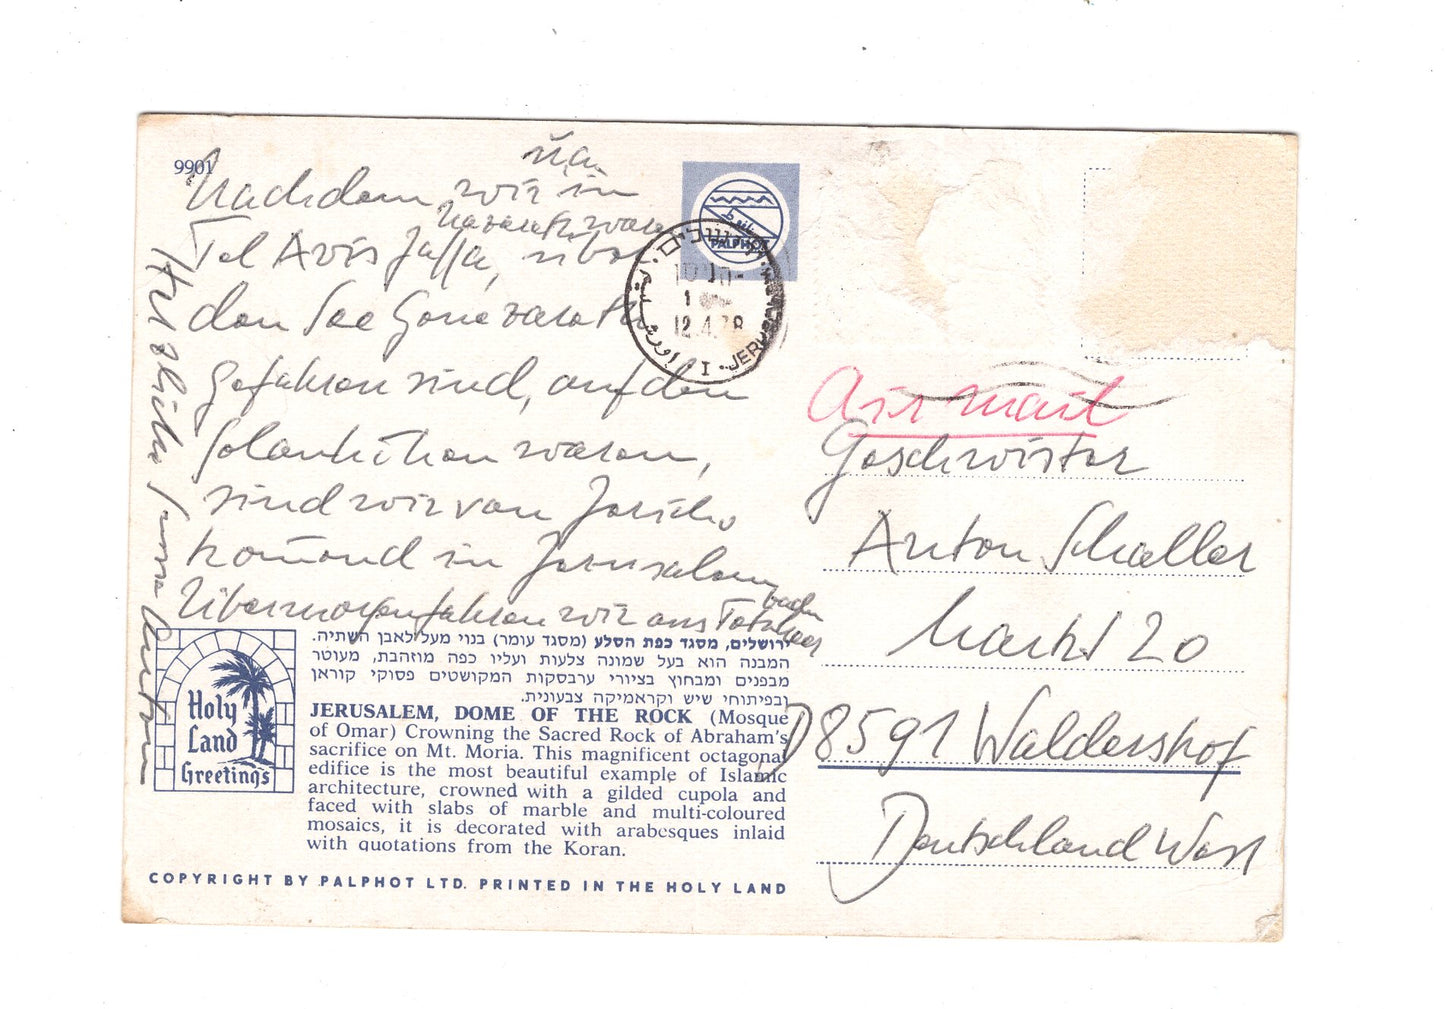 9901
Nachdem wir in
u.a.
Tel Aviv Jaffa,
Nazareth waren
über
den See Genezareth
gefahren sind, auf den
Golanhöhen waren,
sind wir von Jericho
kom̄end in Jerusalem
Übermorgen fahren wir ans Tote Meer
baden
Herzliche Grüsse Anton
PALPHOT
ירושלים
JERUSALEM
12.4.78
I
Air mail
Geschwister
Anton Schaller
Markt 20
D 8591 Waldershof
Deutschland West
ירושלים, מסגד כפת הסלע (מסגד עומר) בנוי מעל לאבן השתיה.
המבנה הוא בעל שמונה צלעות ועליו כפה מוזהבת, מעוטר
מבפנים ומבחוץ בציורי ערבסקות המקושטים פסוקי קוראן
ובפיתוחי שיש וקראמיקה צבעונית.
Holy
Land
Greetings
JERUSALEM, DOME OF THE ROCK (Mosque
of Omar) Crowning the Sacred Rock of Abraham's
sacrifice on Mt. Moria. This magnificent octagonal
edifice is the most beautiful example of Islamic
architecture, crowned with a gilded cupola and
faced with slabs of marble and multi-coloured
mosaics, it is decorated with arabesques inlaid
with quotations from the Koran.
COPYRIGHT BY PALPHOT LTD. PRINTED IN THE HOLY LAND